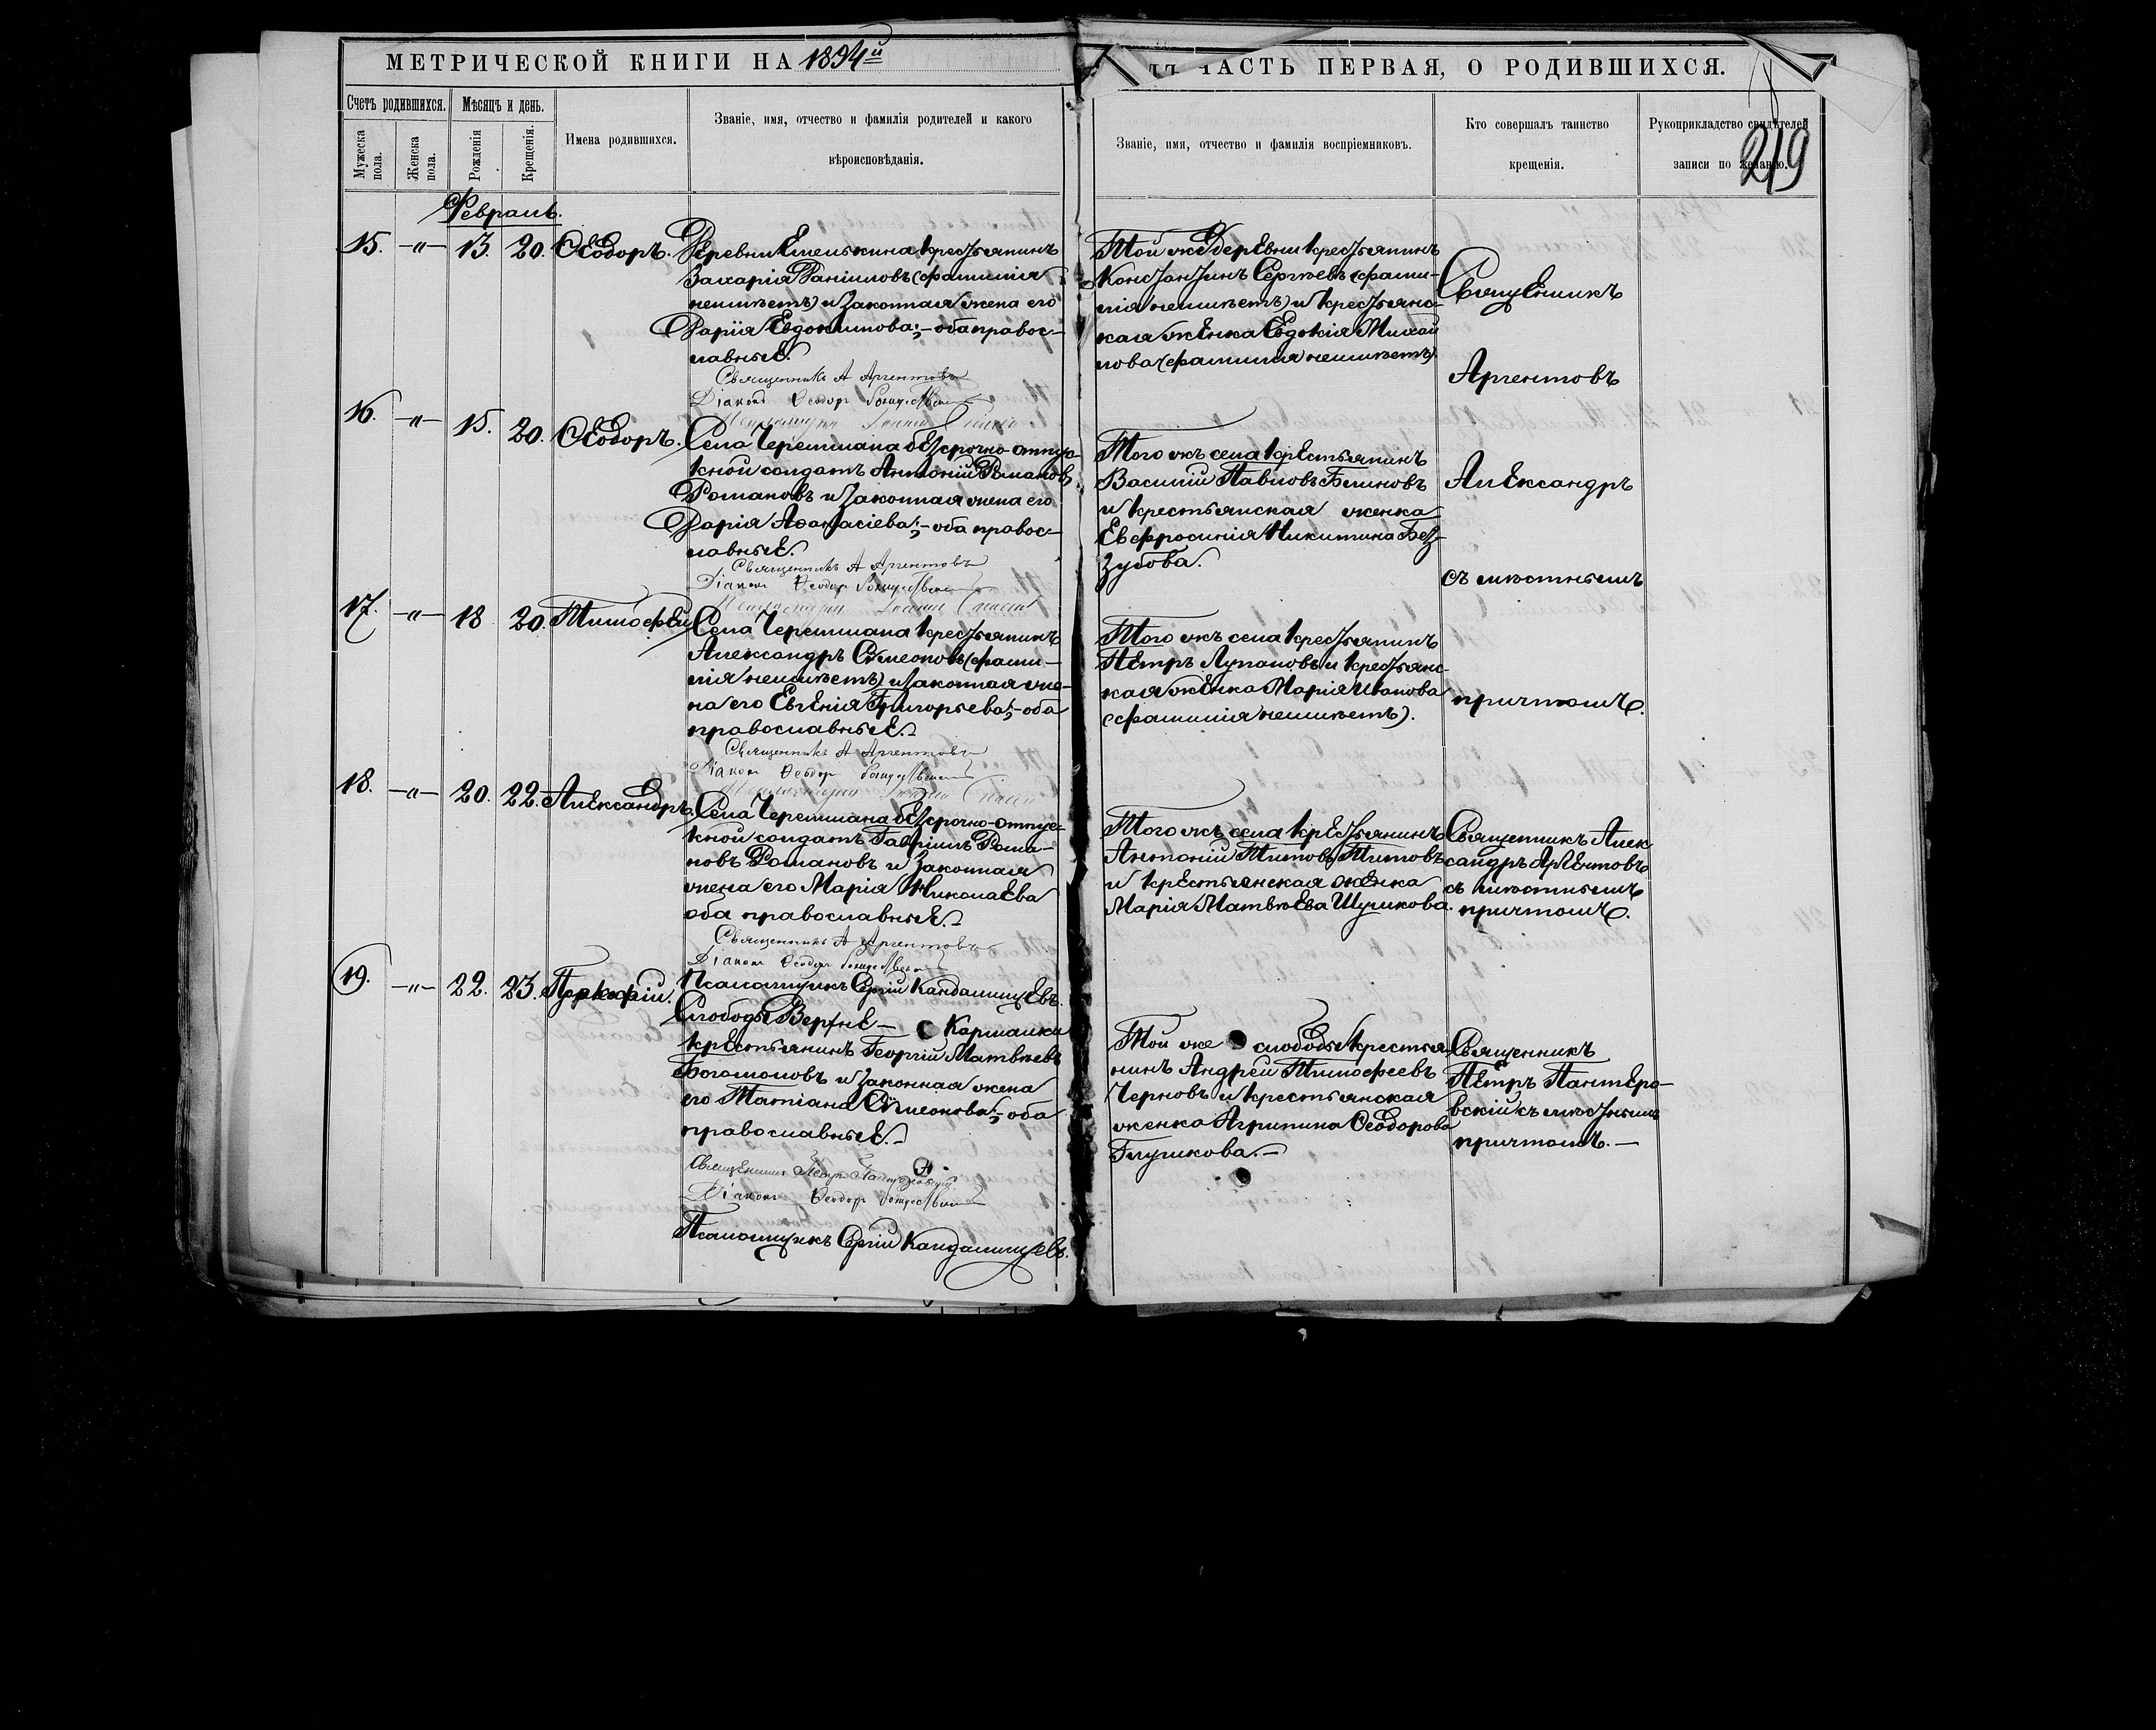 МЕТРИЧЕСКОЙ КНИГИ НА 1894й
ЧАСТЬ ПЕРВАЯ, О РОДИВШИХСЯ.
219
Счетъ родившихся.
Мужеска пола.
Женска пола.
Мѣсяцъ и день.
Рожденія
Крещенія.
Имена родившихся.
Званіе, имя, отчество и фамилія родителей и какого
вѣроисповѣданія.
Званіе, имя, отчество и фамилія воспріемниковъ.
Кто совершалъ таинство
крещенія.
Рукоприкладство свидѣтелей
записи по желанію.
Февраль.
15. -"- 13. 20. Ѳеодоръ.
Деревни Емелькина крестьянинъ
Захарія Данииловъ (фамилія
неимѣетъ) и законная жена его
Дарія Евдокимова;- оба правос-
лавные.
Священникъ А Аргентовъ
Діаконъ Ѳеодоръ Рождественскій
Той же деревни крестьянинъ
Константинъ Сергѣевъ (фами-
лія неимѣетъ) и крестьянс-
кая женка Евдокія Михай
лова (фамилія неимѣетъ).
Священникъ
Аргентовъ
Александръ
съ мѣстнымъ
причтомъ.
16. -"- 15. 20. Ѳеодоръ.
Села Черемшана безсрочно-отпус-
кной солдатъ Антоній Романовъ
Романовъ и законная жена его
Дарія Аѳанасіева;- оба правос-
лавные.
Священникъ А Аргентовъ
Діаконъ Ѳеодоръ Рождественскій
Того жъ села крестьянинъ
Василій Павловъ Блиновъ
и крестьянская женка
Евфросинія Никитина Без-
зубова.
17. -"- 18 20. Тимофей
Села Черемшана крестьянинъ
Александръ Сѵмеоновъ (фами-
лія неимѣетъ) и законная же-
на его Евгенія Григорьева;- оба
православные.-
Священникъ А Аргентовъ
Діаконъ Ѳеодоръ Рождественскій
Того жъ села крестьянинъ
Петръ Лупановъ и крестьянс-
кая женка Марія Иванова
(фамилія неимѣетъ).
18. -"- 20. 22. Александръ.
Села Черемшана безсрочно-отпус-
кной солдатъ Гавріилъ Рома-
новъ Романовъ и законная
жена его Марія Николаева
оба православные.-
Священникъ А Аргентовъ
Діаконъ Ѳеодоръ Рождественскій
Псаломщикъ Сергій Кандалинцевъ.
Того жъ села крестьянинъ
Антоній Титовъ Титовъ
и крестьянская женка
Марія Матвѣева Шушкова.
Священникъ Алек
сандръ Аргентовъ
съ мѣстнымъ
причтомъ.
19. -"- 22. 23. Прокофій.
Слободы Верхне- Кармалки
крестьянинъ Георгій Матвѣевъ
Богомоловъ и законная жена
его Татіана Сѵмеонова;- оба
православные.-
Діаконъ Ѳеодоръ Рождественскій
Псаломщикъ Сергій Кандалинцевъ.
Той же слободы крестья-
нинъ Андрей Тимофеевъ
Черновъ и крестьянская
женка Агрипина Ѳеодорова
Глушкова.-
Священникъ
Петръ Пантеро-
вскій съ мѣстнымъ
причтомъ.-